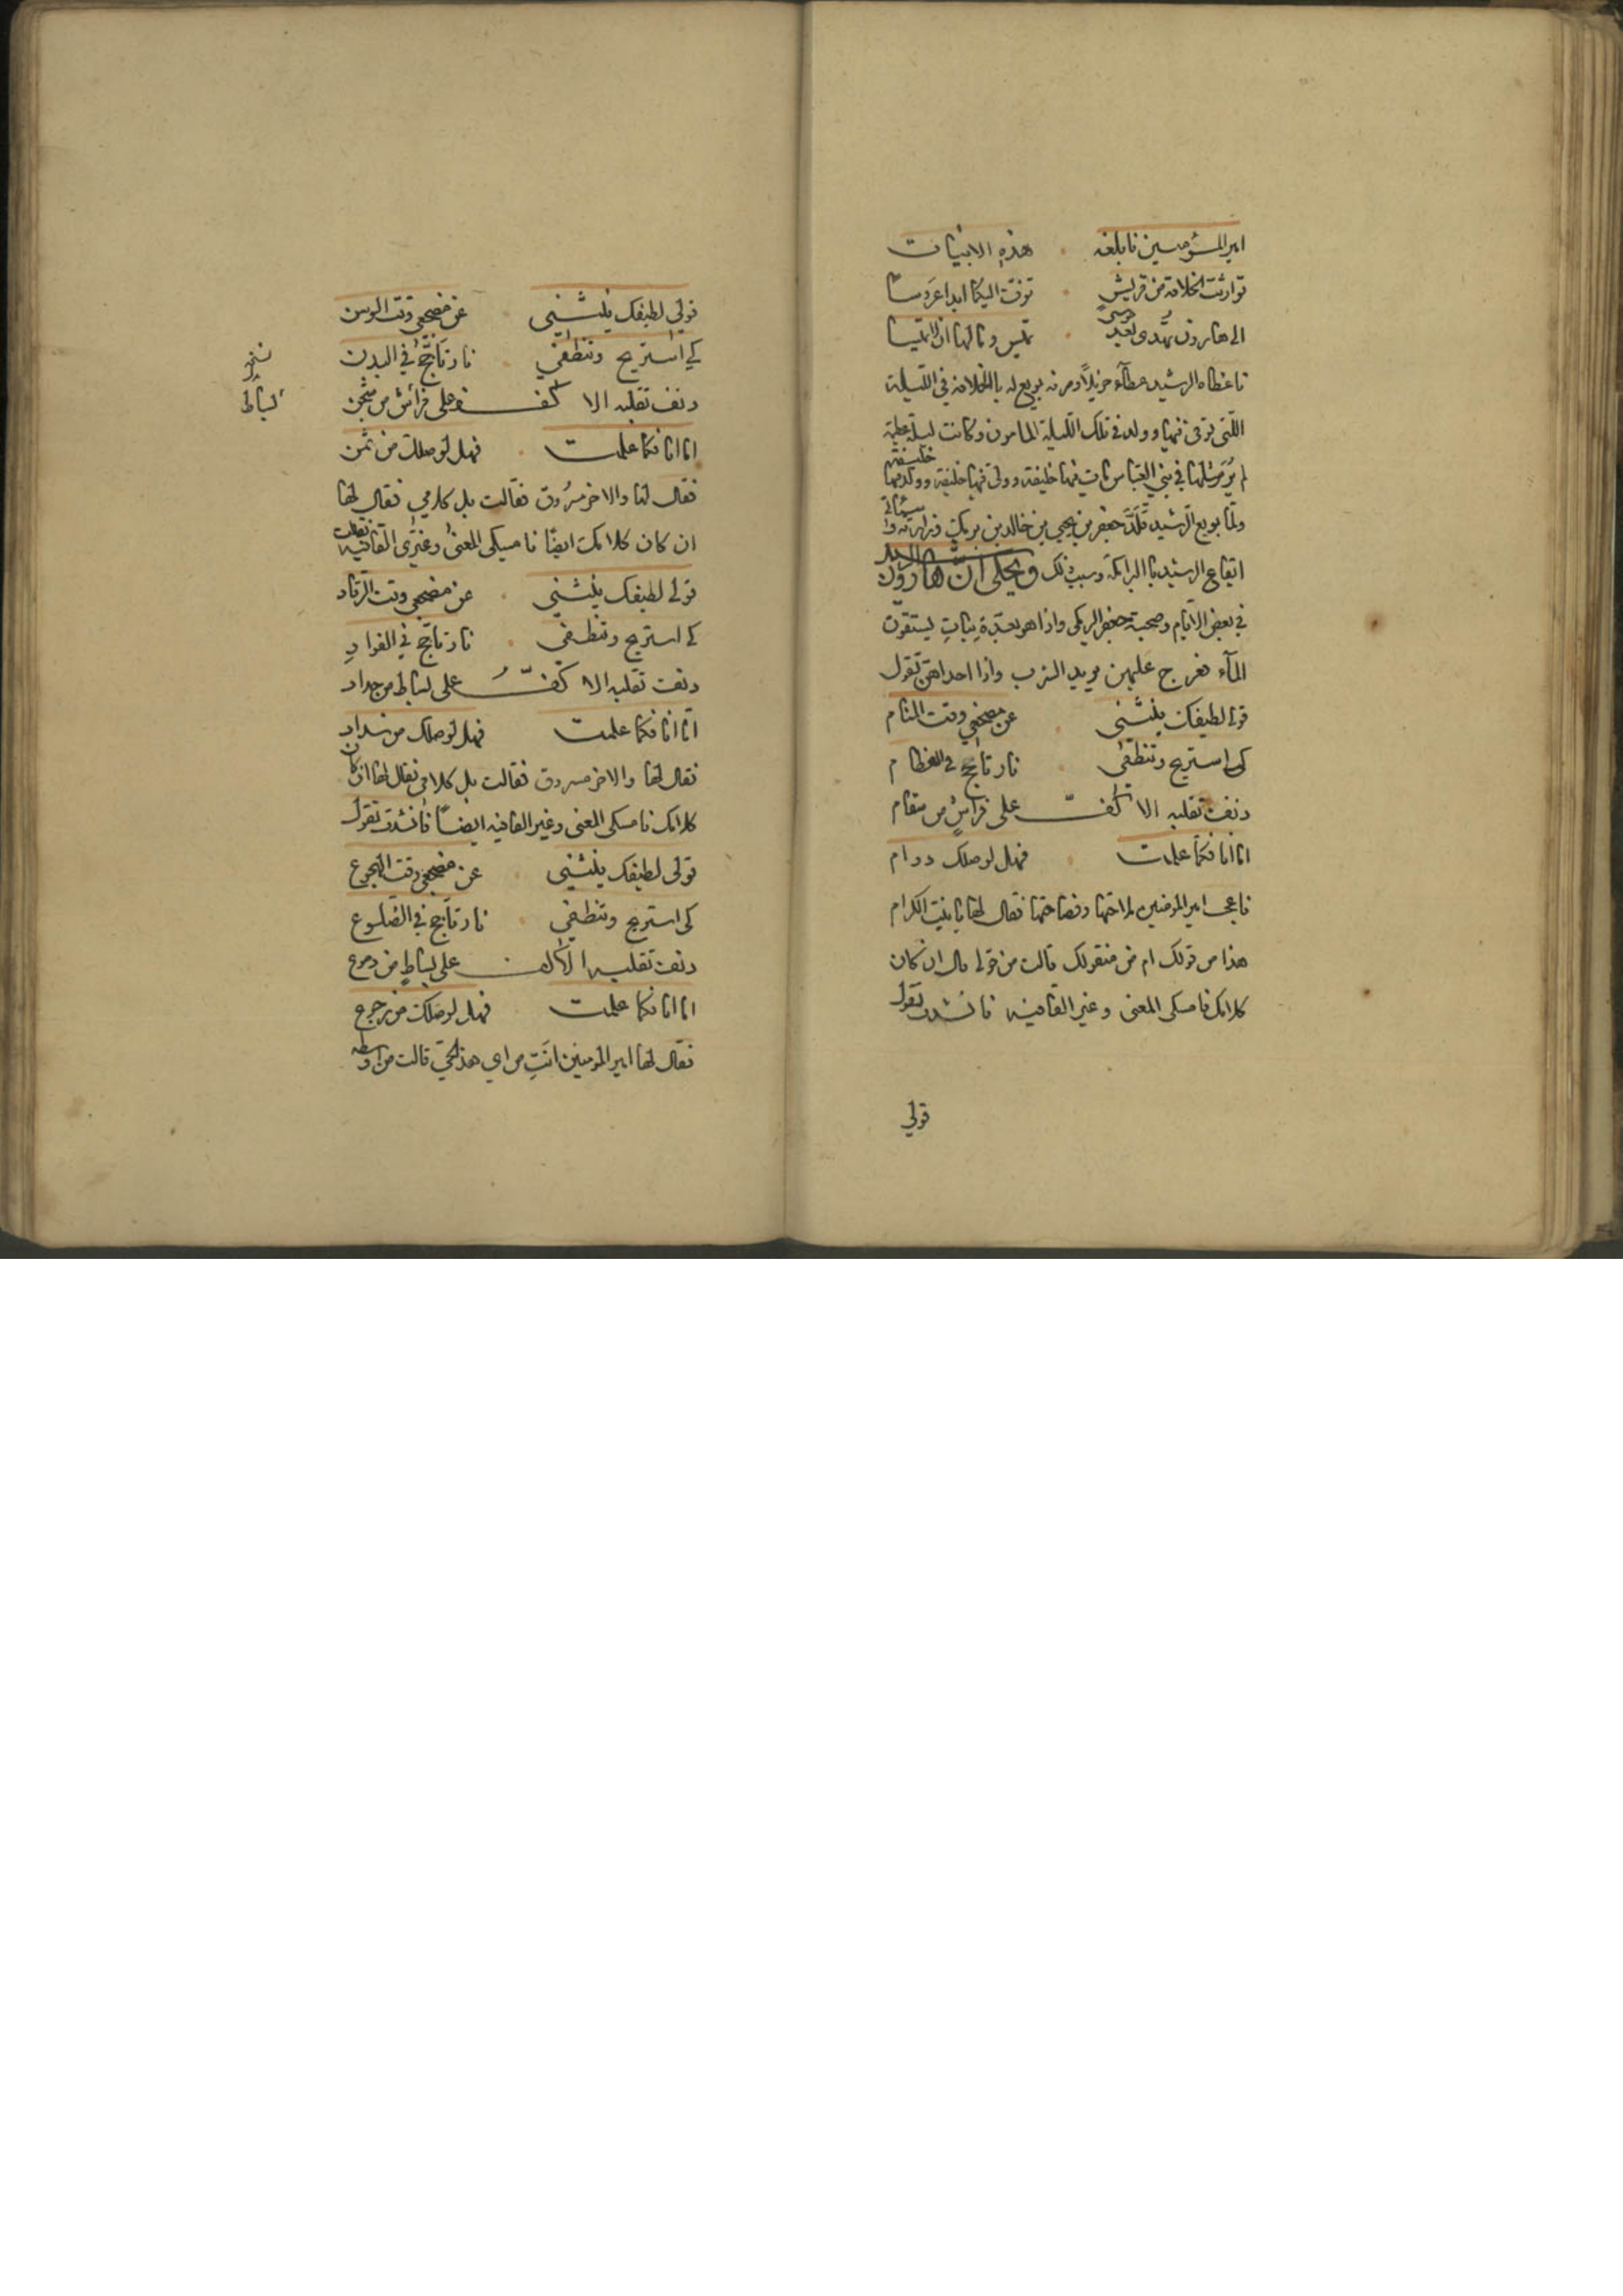 امير المؤمنين فابلغه هذه الابيات
توارثت الخلافة من قريش تزف اليكما ابدا عروسا
الى هارون تهدى بعد موسى تميس وما لها ان لا تميسا
فاعطاه الرشيد عطآء جزيلاً ومرفه بويع له باالخلافة في اللّيلة
اللّتى توفى فيها وولد في تلك اللّيلة المامون وكانت ليلة عظيمة
لم يُرَ مثلها في بني العبّاس مات فيها خليفة وولى فيها خليفة وولد فيها خليفة
ولمّا بويع الرّشيد قلّدَ جعفر بن يحيى بن خالد بن برمك وزارته وا
ايقاع الرشيد باالبرامكة وسبب ذلك ويحكى انّ هارون الرشيد
في بعض الايّام وصحبة جعفر البرمكى واذا هو بعدّة بنات يستقون
المآء فعرج عليهن يريد الشرب واذا احداهن تقول
قولى لطيفك ينثنى عن مضجعي وقت المنام
كى استريح وتنطفى نار تأجج في العظام
دنف تقلبه الاكفّ على فراشٍ من سقام
امّا انا فكما علمت فهل لوصلك دوام
فاعجب امير المومنين لملاحتها وفصاحتها فقال لها يابنت الكرام
هذا من قولك ام من منقولك قالت من قولى قال ان كان
كلامك فامسكى المعنى وغير القافيه فانشدت تقول
قولي
قولي لطيفك ينثنى عن مضجعي وقت الوسن
كي استريح وتنطفي نار تأجّج في البدن
دنف تقلبه الاكف على فراش من شجن
امّا انا فكما علمت فهل لوصلك من ثمن
فقال لها والاخر مسرُوق فقالت بل كلامي فقال لها
ان كان كلامك ايضًا فامسكى المعنى وغيّرى القافيه فقالت
قولى لطيفك ينثنى عن مضجعي وقت الرّقاد
كي استريح وتنطفي نار تأجّج في الفوادِ
دنف تقلبه الاكفّ على بساط من حداد
امّا انا فكما علمت فهل لوصلك من سداد
فقال لها والاخر مسروق فقالت بل كلامى فقال لها ان كان
كلامك فامسكى المعنى وغير القافيه ايضاً فانشدت تقول
قولى لطيفك ينثنى عن مضجعي وقت الهجوع
كى استريح وتنطفي نار تأجج في الضلوع
دنف تقلبه الاكف على بساطٍ من دموع
امّا انا فكما علمت فهل لوصلك من رجوع
فقال لها امير المومنين انتِ من اي هذا الحيّ قالت من اوسطه
نخـ
بساط